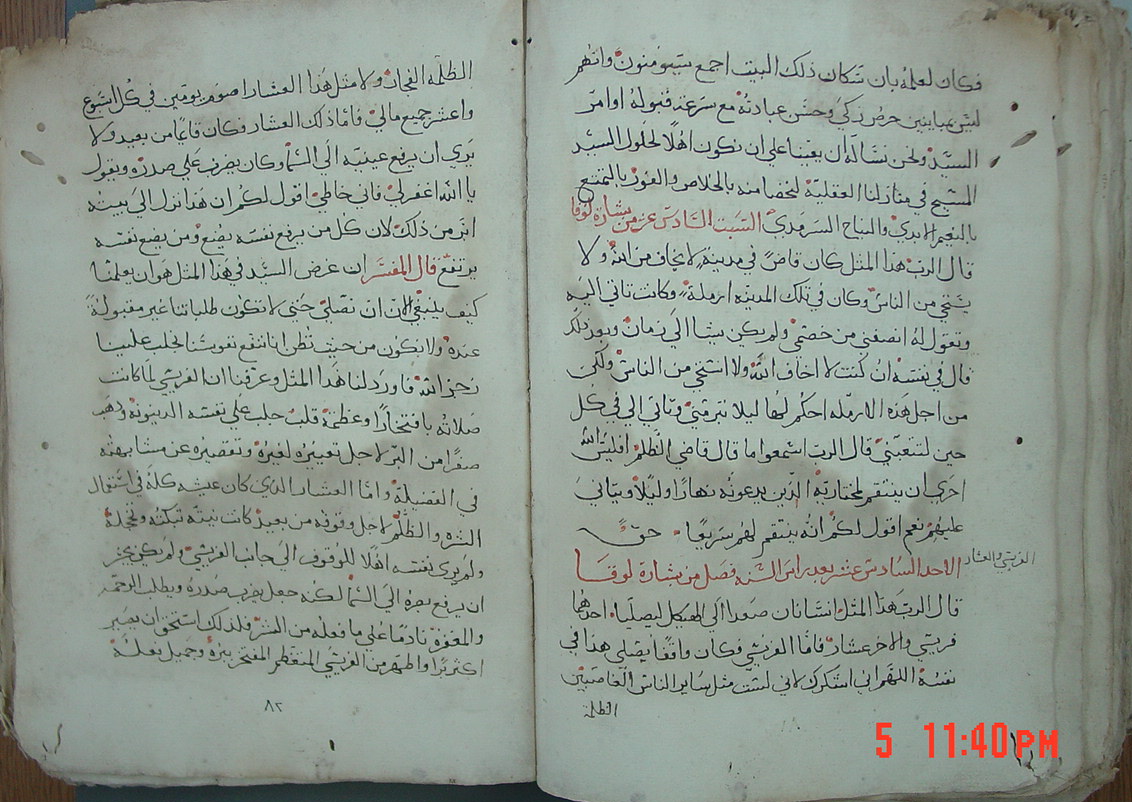 فكان لعلمه بان سكان ذلك البيت اجمع سيومنون وانهم
ليس مباينين حرص زكي وحسن عبادته مع سرعة قبوله اوامر
السيد ونحن نساله ان يعيننا على ان نكون اهلا لحلول السيد
المسيح في منازلنا العقلية لتحضا منه بالخلاص والفوز بالتمتع
بالنعيم الابدي والنياح السرمدي السبت السادس عشر من بشارة لوقا
قال الرب هذا المثل كان قاض في مدينة لا يخاف من الله ولا
يستحي من الناس وكان في تلك المدينه ارملة وكانت تاتي اليه
وتقول له انصفني من خصمي ولم يكن يشا الى زمان وبعد ذلك
قال في نفسه ان كنت لا اخاف الله ولا استحي من الناس ولكن
من اجل هذه الارمله احكم لها ليلا تبرمني وتاتي الي في كل
حين لتتعبني قال الرب اسمعوا ما قال قاضي الظلم افليس الله
احرى ان ينتقم لمختاريه الذين يدعونه نهارا وليلا ويتانى
عليهم نعم اقول لكم انه ينتقم لهم سريعا حق
الاحد السادس عشر بعد راس السنه فصل من بشارة لوقا
الفريسي والعشار
قال الرب هذا المثل انسانان صعدا الى الهيكل ليصليا احدهما
فريسي والاخر عشار فاما الفريسي فكان واقفا يصلي هذا في
نفسه اللهم اني اشكرك لاني لست مثل ساير الناس الغاصبين
الظلمة
الظلمه الفجار ولا مثل هذا العشار اصوم يومين في كل اسبوع
واعشر جميع مالي فاما ذلك العشار فكان قايما من بعيد ولا
يرى ان يرفع عينيه الى السما وكان يضرب على صدره ويقول
يا الله اغفر لي فاني خاطي اقول لكم ان هذا نزل الى بيته
ابر من ذلك لان كل من يرفع نفسه يضع ومن يضع نفسه
يرتفع قال المفسر ان غرض السيد في هذا المثل هو ان يعلمنا
كيف ينبغي الان ان نصلي حتى لا تكون طلباتنا غير مقبولة
عنده ولا نكون من حيث نظن اننا ننفع نفوسنا نجلب علينا
رجز الله فاورد لنا هذا المثل وعرفنا ان الفريسي لما كانت
صلاته بافتخار وعظمة قلب جلب على نفسه الدينونه وذهب
صفرا من البر لاجل تعييره لغيره وتقصيره عن مشابهته
في الفضيلة واما العشار الذي كان عيشه كله في اشتغال
الشره والظلم لاجل وقوفه من بعيد كانت نيته تبكته وتخجله
ولم يرى نفسه اهلا للوقوف الى جانب الفريسي ولم يكن يجسر
ان يرفع بصره الى السما لكنه جعل يضرب صدره ويطلب الرحمه
والمغفرة نادما على ما فعله من الشر فلذلك استحق ان يصير
اكثر برا واطهر من الفريسي المتعظم المفتخر ببره وجميل فعله
٨٢
5 11:40 PM